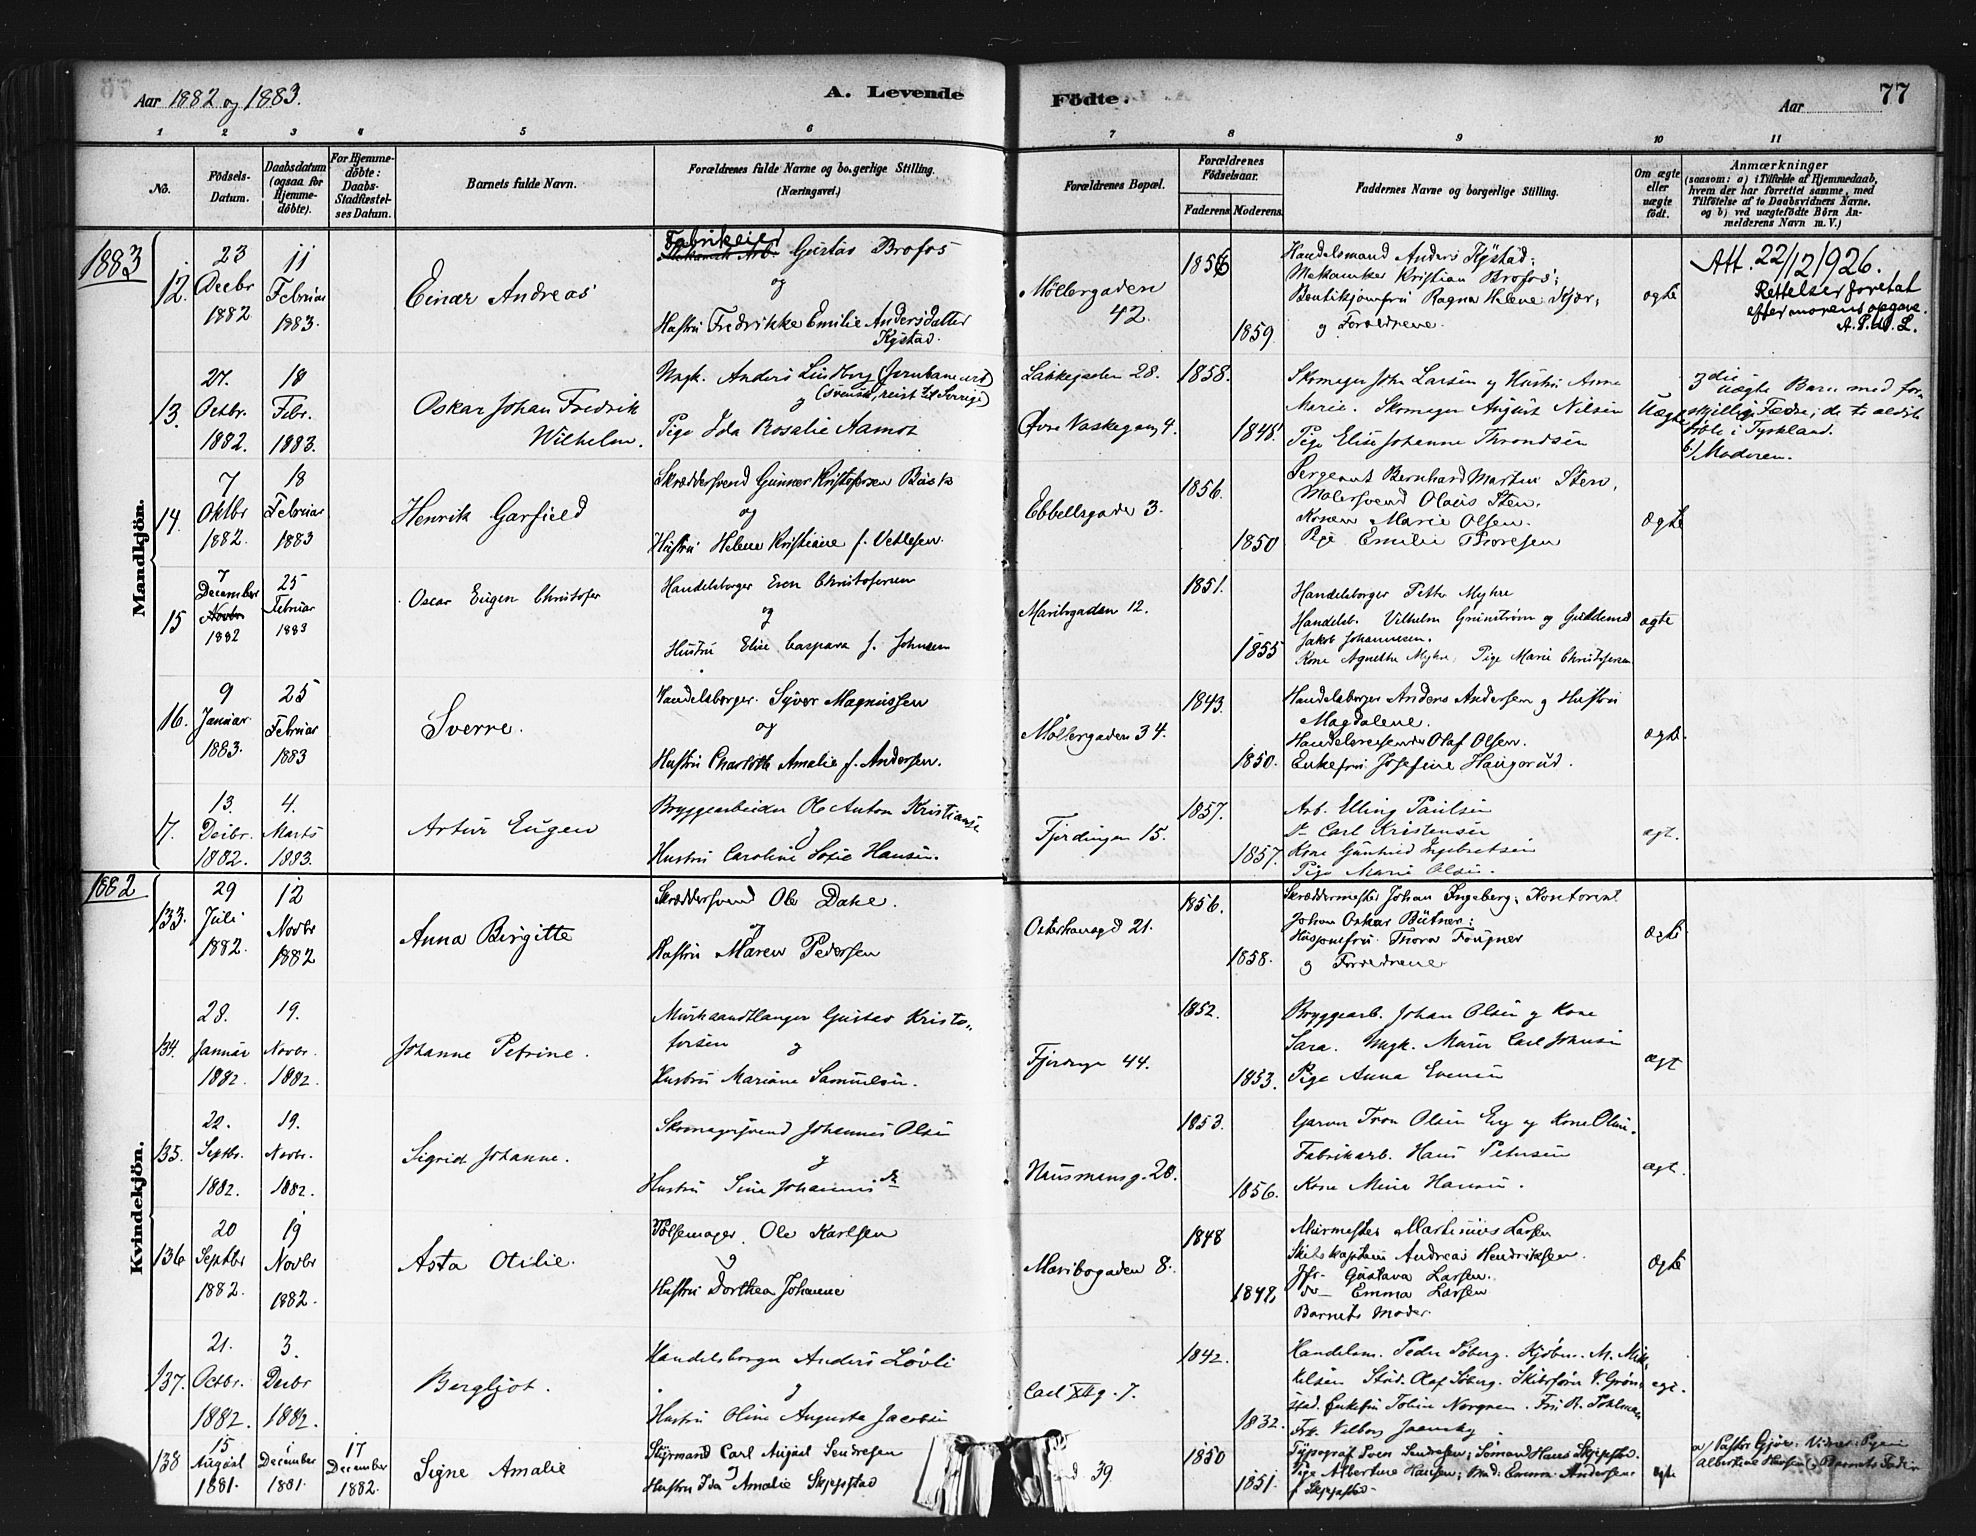 Aar 1882 og 1883.
A. Levende
Födte.
Aar
77
1 2 3 4 5 6 7 8 9 10 11
No.
Födsels-Datum.
Daabsdatum (ogsaa for Hjemme-döbte).
For Hjemme-döbte: Daabs-Stadfæstel-ses Datum.
Barnets fulde Navn.
Forældrenes fulde Navne og borgerlige Stilling.
(Næringsvei.)
Forældrenes Bopæl.
Forældrenes Födselsaar.
Faderens
Moderens
Faddernes Navne og borgerlige Stilling.
Om ægte eller uægte födt.
Anmærkninger
(saasom: a) i Tilfælde af Hjemmedaab,
hvem der har forrettet samme, med
Tilföielse af to Daabsvidners Navne.
og b) ved uægtefödte Börn An-
melderens Navn m. V.)
1883
Mandkjön.
12.
23 Decbr 1882
11 Februar 1883.
Einar Andreas
Fabrikeier Gustav Brofos
og
Hustru Fredrikke Emilie Andersdatter
Kjystad.
Möllergaden 42.
1856
1859
Handelsmand Anders Kjystad;
Mekanikes Kristian Brofos;
Boutikjomfru Ragna Helene Kjær;
og Forældrene.
ægte
Att. 22/12 1926.
Rettelser foretat
efter morens opgave.
13.
27. Octbr. 1882.
18 Febr. 1883.
Oskar Johan Fredrik
Wilhelm.
Ungk. Anders Lindborg (Jernbanearb)
og (svensk, reist til Sverige)
Pige Ida Rosalie Aamot
Lakkegaden 28.
Øvre Vaskegang 4.
1858.
1848
Skomager John Larsen og Hustru Anne
Marie. Skomager August Nilsen
Pige Elise Johanne Throndsen
Uægte
3die uægte Barn med for-
skjellig Fædre; de to ældste
i Tyskland.
b/ Moderen.
14.
7 Oktbr 1882.
18 Februar 1883
Henrik Garfield
Skræddersvend Gunnar Kristofersen
og
Hustru Helene Kristiane f. Vetlesen.
Ebbellsgade 3.
1856.
1850
Sergeant Bernhard Martin Sten,
Malersvend Olaus Sten.
Konen Marie Olsen.
Pige Emilie Thoresen
ægte
15
7 December Novbr 1882
25 Februar 1883
Oscar Eugen Christofer
Handelsborger Even Christofersen
og
Hustru Elise Caspara f. Johnsen
Maribogaden 12.
1851.
1855
Handelsborger Petter Myhre
Handelsb. Vilhelm Grünström og Guldsmed
Jakob Johannesen.
Kone Agnethe Myhre, Pige Marie Christofersen
ægte
16.
9 Januar 1883.
25 Februar 1883
Sverre.
Handelsborger. Syver Magnussen
og
Hustru Charlotte Amalie f. Andersen.
Möllergaden 34.
1843.
1850.
Handelsborger Anders Andersen og Hustru
Magdalene.
Handelsreisende Olaf Olsen.
Enkefru Josefine Haugerud.
ægte
17.
13. Decbr. 1882.
4. Marts 1883.
Artur Eugen
Bryggearbeider Ole Anton Kristianse
og
Hustru Caroline Sofie Hansen.
Fjerdingen 15.
1857.
1857.
Arb. Elling Paulsen
Do Carl Kristensen
Kone Gunhild Ingebretsen
Pige Marie Olsen.
ægt.
1882
Kvindekjön.
133.
29 Juli 1882
12 Novbr 1882
Anna Birgitte
Skræddersvend Ole Dahl.
og
Hustru Maren Pedersen
Osterhausgd 21.
1856.
1858.
Skræddermester Johan Ingeberg; Kontorist
Johan Oskar Bütner;
Husjomfru Thora Fougner
og Forældrene
ægte
134.
28. Januar 1882.
19. Novbr. 1882.
Johanne Petrine.
Murhaandlanger Gustav Kristo-
fersen og
Hustru Mariane Samuelsen.
Fjerdingn 44.
1852.
1853.
Bryggearb. Johan Olsen og Kone
Sara. Ungk. Murer Carl Johnsen
Pige Anna Evensen
ægt
135.
22. Septbr. 1882.
19. Novbr. 1882.
Sigrid Johanne.
Skomagersvend Johannes Olsen
og
Hustru Sina Johannesdr
Hausmansg. 20.
1853.
1856.
Garver Tron Olsen Evy og Kone Oline.
Fabrikarb. Hans Petersen
Kone Mina Hansen.
ægt.
136
20 Septbr 1882.
19 Novbr 1882.
Asta Otilie.
Pölsemager Ole Karlsen
og
Hustru Dorthea Johanne
Maribogaden 8.
1848
1849,
Murmester Martinius Larsen
Skibskaptein Andreas Hendriksen.
Jfr. Gustava Larsen.
do— Emma Larsen
Barnets Moder.
ægte
137.
21. Octbr. 1882.
3. Decbr 1882.
Bergljot.
Handelsborger Anders Lövli
og
Hustru Oline Augusta Jacobsen
Carl XIIg. 7.
1842.
1832.
Handelsm. Peder Söberg. Kjöbm. M. Mik-
kelsen Stud. Olaf Söberg. Skibsförer V. Grön-
stad. Enkefru Toline Norgren. Fru R. Pohlman
Frk. Valborg
ægt.
138
15 August 1881.
1 December 1881.
17 December 1882.
Signe Amalie
Styrmand Carl August Sendresen
og
Hustru Ida Amalie Skjepstad
39
1850
1851.
Typograf Sven Sendresen; Sömand Hans Skjepstad.
Pige Albertine Hansen; Mad. Emma Andersen
f. Skjepstad—
ægte
a/ Pastor Gjör. Vidner: Pigen
Albertine Hansen og Barnets Fader